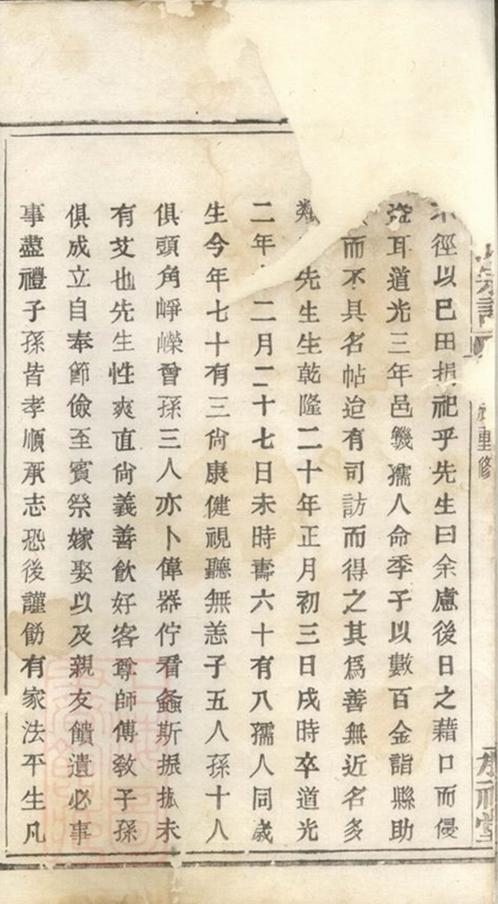 徑以已田捐祀乎先生曰余慮後日之藉口而侵
耳道光三年邑饑孺人命季子以數百金詣縣助
而不具名帖迨有司訪而得之其爲善無近名多
先生生乾隆二十年正月初三日戌時卒道光
二年二月二十七日未時壽六十有八孺人同歲
生今年七十有三尙康健視聽無恙子五人孫十八
俱頭角崢嶸曾孫三人亦卜偉器佇看螽斯振振未
有艾也先生性爽直尙義善飲好客尊師傅敎子孫
俱成立自奉節儉至賓祭嫁娶以及親友饋遺必事
事盡禮子孫皆孝順承志恐後謹飭有家法平生凡
重修
承祠堂